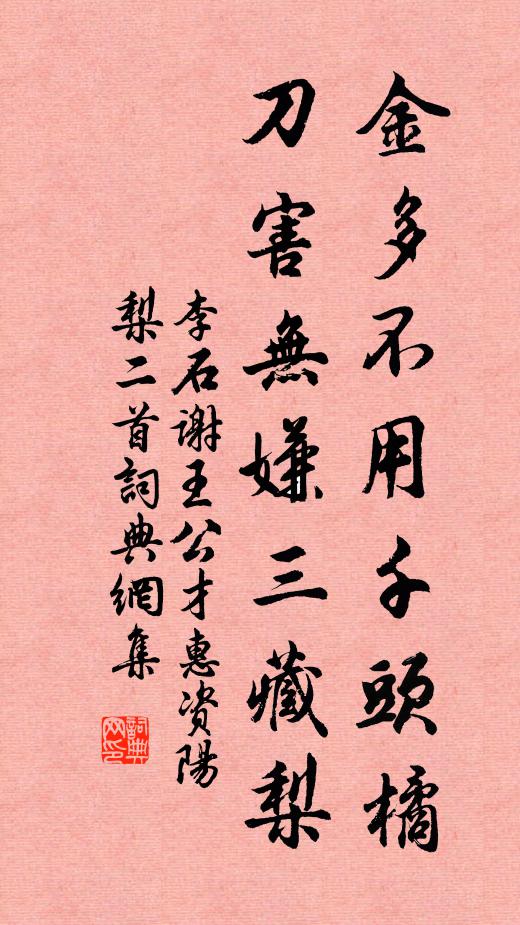 金多不用千頭橘
刀害無嫌三藏梨
李石谢王公才惠资陽
梨二首詞典網集
詞典
网印